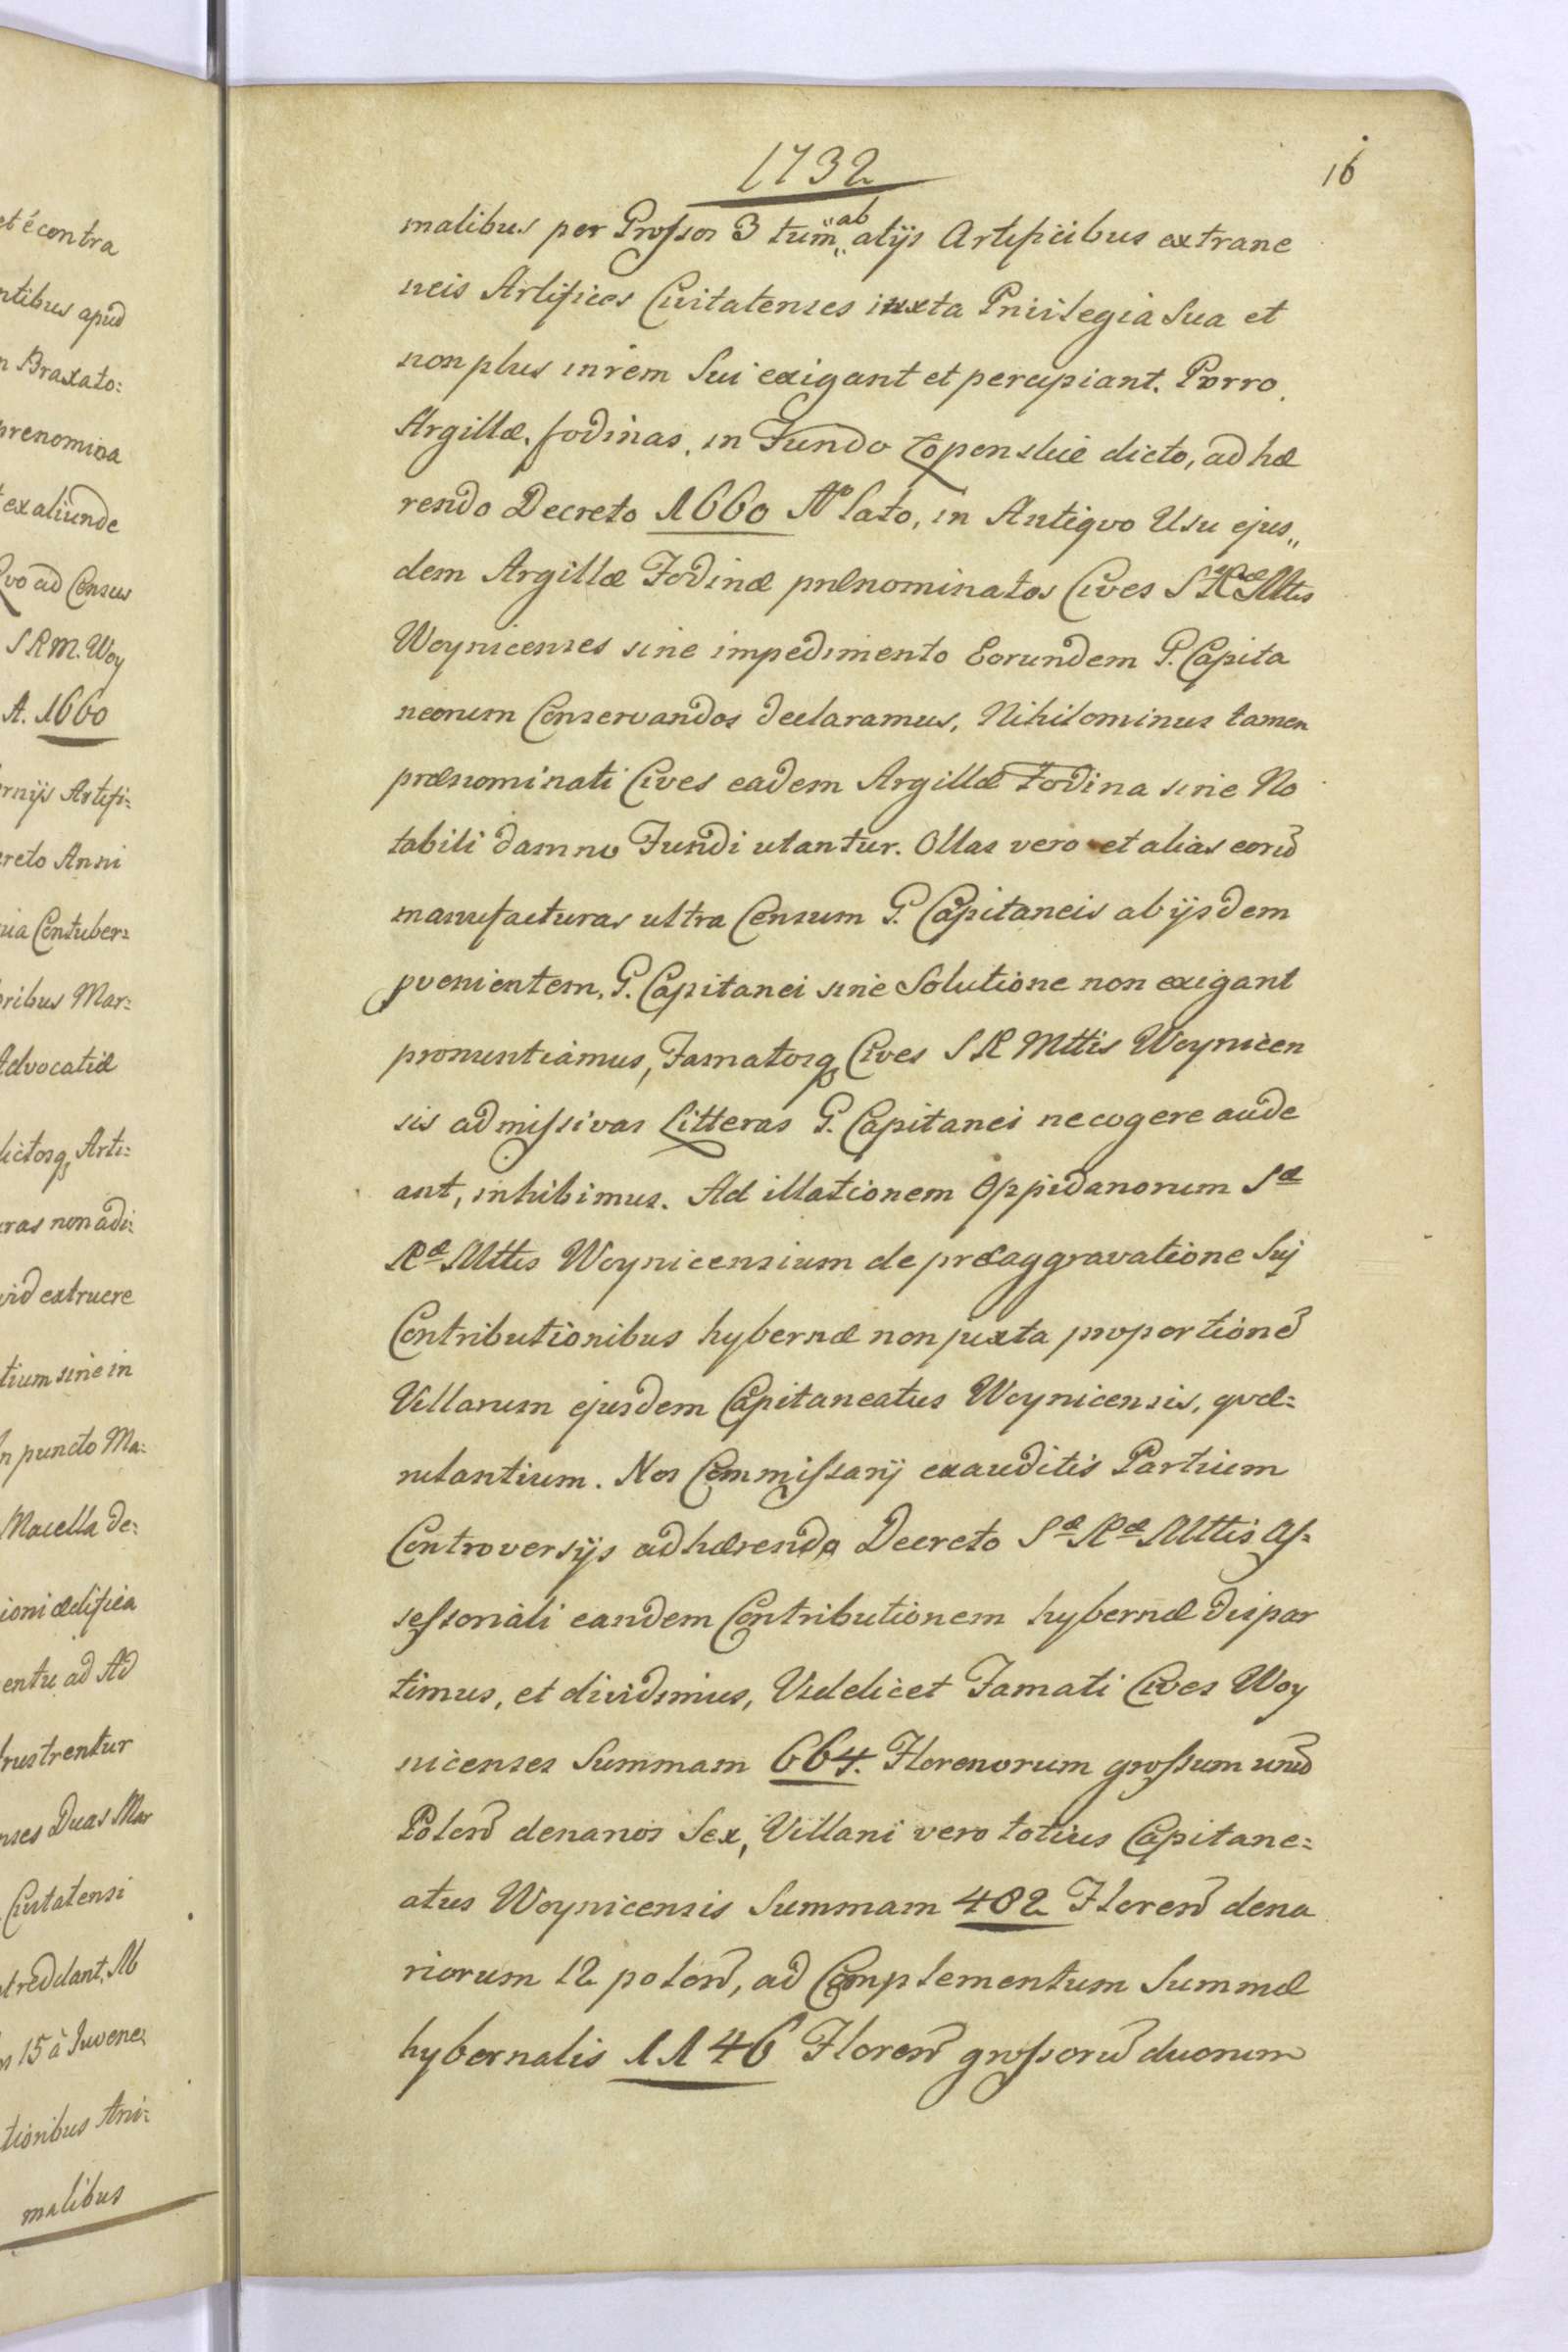 et écontra
ntibus apud
n Braxato:
prenomina
t ex aliunde
Qvo ad Census
S R M. Woy
A. 1660
erniis Artifi:
creto Anni
uia Contuber:
oribus Mar:
Advocatiæ
dictosq Arti:
uras non adi:
vid extruere
tium sine in
In puncto Ma:
Macella de:
ioni ædifica
entu ad Ad
frustrentur
nses Duas Mar
Civitatensi
t reddant. Ab
n 15 à Juvene
tionibus Ani:
malibus
1732
16
malibus per Grossos 3 tum „ab„ alijs Artificibus extrane
neis Artifices Civitatenses iuxta Privilegia Sua et
non plus in rem Sui exigant et percipiant. Porro
Argillæ fodinas, in Fundo Łoponskie dicto, ad hæ
rendo Decreto 1660 Aº lato, in Antiqvo Usu ejus„
dem Argillæ Fodinæ prænominatos Cives Sæ Ræ Mttis
Woynicenses sine impedimento Eorundem G. Capita
neorum Conservandos declaramus, Nihilominus tamen
prænominati Cives eadem Argillæ Fodina sine No
tabili damno Fundi utantur. Ollas vero et alias eorū
manufacturas ultra Censum G. Capitaneis ab ijsdem
pvenientem, G. Capitanei sine Solutione non exigant
pronuntiamus, Famatosq Cives S R Mttis Woynicen
sis ad missivas Litteras G. Capitanei ne cogere aude
ant, inhibimus. Ad illationem Oppidanorum Sæ
Ræ Mttis Woynicensium de præaggravatione Sui
Contributionibus hybernæ non juxta proportionē
Villarum ejusdem Capitaneatus Woynicensis, qvæ:
rulantium. Nos Commissarij exauditis Partium
Controversijs adhærendo Decreto Sæ Ræ Mttis As:
sessoriali eandem Contributionem hybernæ dispar
timus, et dividimus, Videlicet Famati Cives Woy
nicenses Summam 664. Florenorum grossum unū
Polon̄ denarios Sex, Villani vero totius Capitane:
atus Woynicensis Summam 482 Floren̄ dena
riorum 12 polon̄, ad Complementum Summæ
hybernalis 1146 Floren̄ grossorū duorum